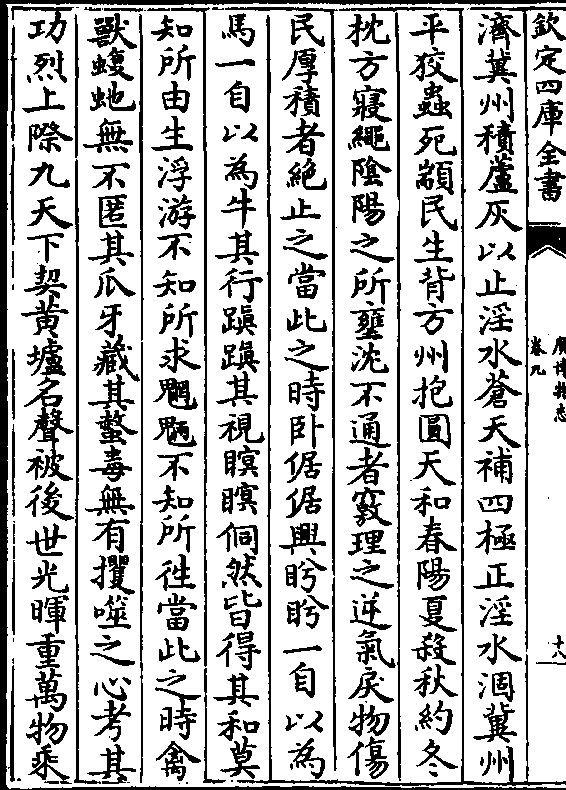 欽定四庫全書
廣博物志
卷九
十八
濟冀州積蘆灰以止淫水蒼天補四極正淫水涸冀州
平狡蟲死顓民生背方州抱圓天和春陽夏殺秋約冬
枕方寢繩陰陽之所壅沈不通者竅理之逆氣戾物傷
民厚積者絶止之當此之時卧倨倨興眄眄一自以為
馬一自以為牛其行蹎蹎其視瞑瞑侗然皆得其和莫
知所由生浮游不知所求魍魎不知所徃當此之時禽
獸蝮虵無不匿其爪牙藏其螫毒無有攫噬之心考其
功烈上際九天下契黄壚名聲被後世光暉重萬物乘